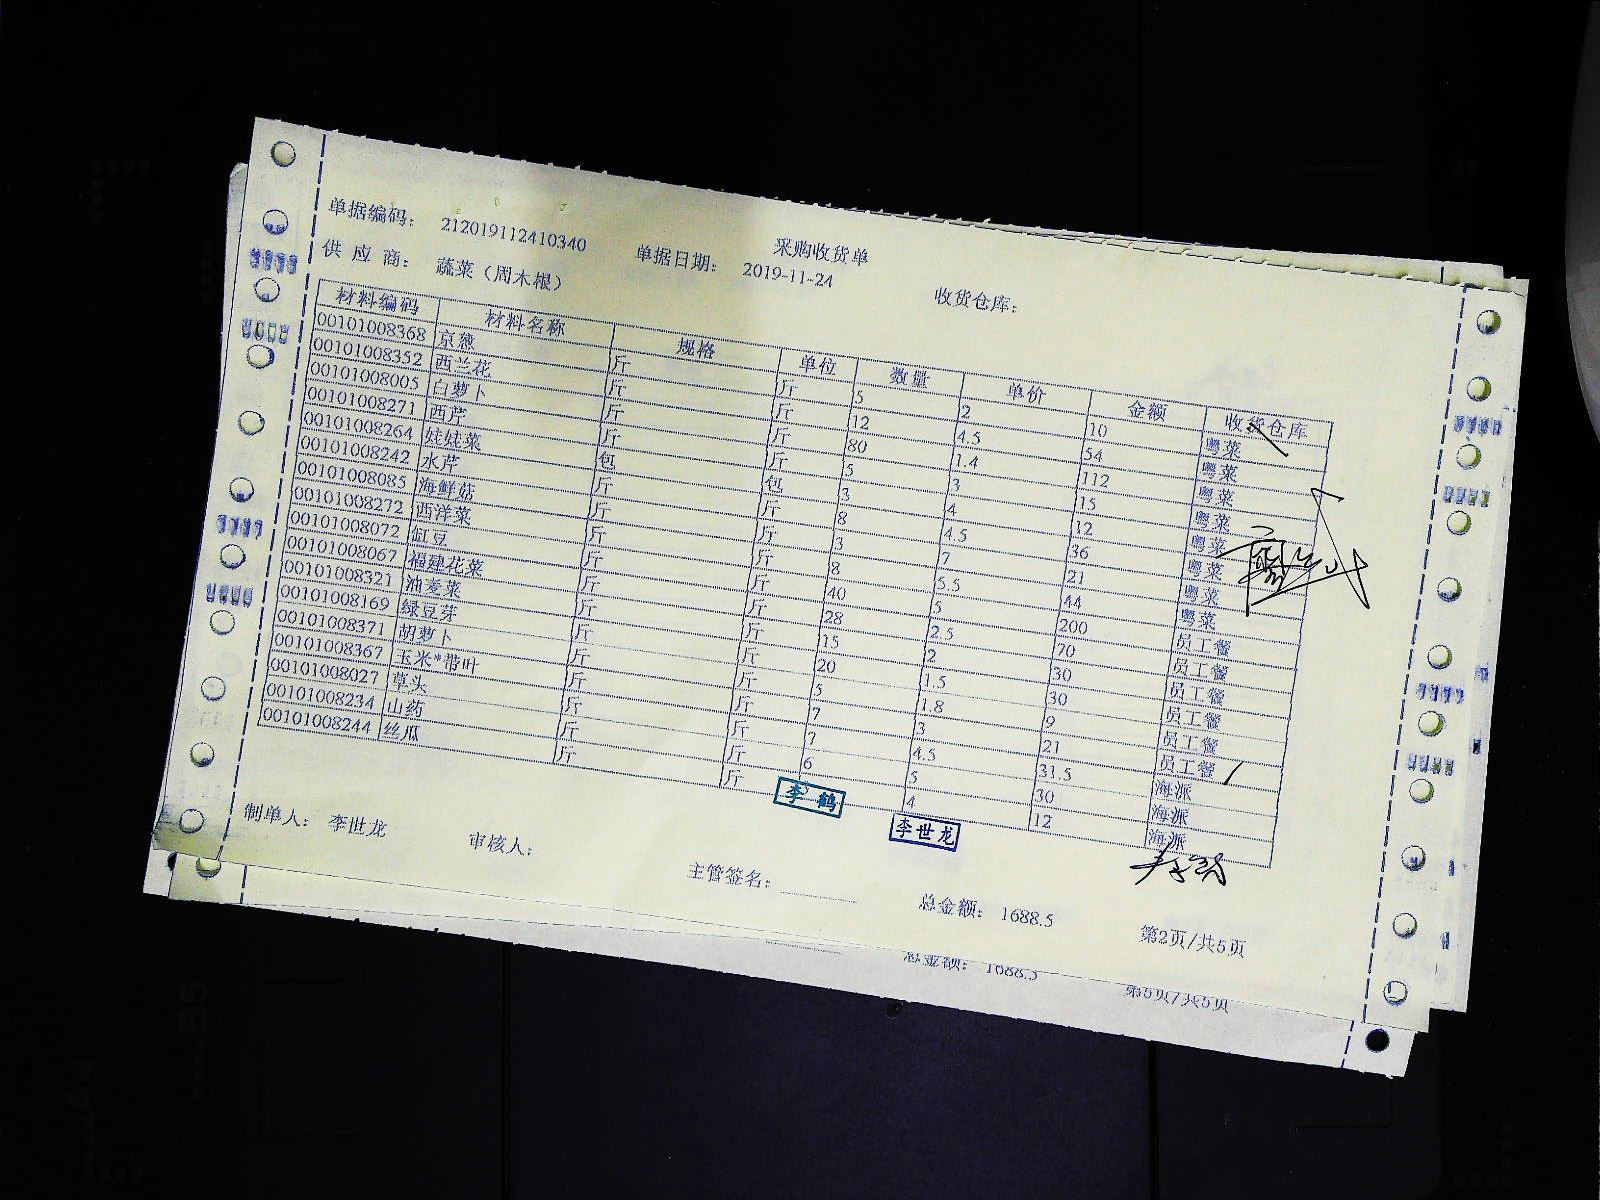 采购收货单
单据编码： 212019112410340 单据日期： 2019-11-24 收货仓库：
供 应 商： 蔬菜（周木根）
材料编码 材料名称 规格 单位 数量 单价 金额 收货仓库
00101008368 京葱 斤 斤 5 2 10 粤菜
00101008352 西兰花 斤 斤 12 4.5 54 粤菜
00101008005 白萝卜 斤 斤 80 1.4 112 粤菜
00101008271 西芹 斤 斤 5 3 15 粤菜
00101008264 娃娃菜 包 包 3 4 12 粤菜
00101008242 水芹 斤 斤 8 4.5 36 粤菜
00101008085 海鲜菇 斤 斤 3 7 21 粤菜
00101008272 西洋菜 斤 斤 8 5.5 44 粤菜
00101008072 缸豆 斤 斤 40 5 200 员工餐
00101008067 福建花菜 斤 斤 28 2.5 70 员工餐
00101008321 油麦菜 斤 斤 15 2 30 员工餐
00101008169 绿豆芽 斤 斤 20 1.5 30 员工餐
00101008371 胡萝卜 斤 斤 5 1.8 9 员工餐
00101008367 玉米*带叶 斤 斤 7 3 21 员工餐
00101008027 草头 斤 斤 7 4.5 31.5 海派
00101008234 山药 斤 斤 6 5 30 海派
00101008244 丝瓜 斤 斤 4 12 海派
李鹤
李世龙
制单人： 李世龙 审核人： 主管签名： 总金额： 1688.5 第2页/共5页
总金额： 1688.5 第5页/共5页